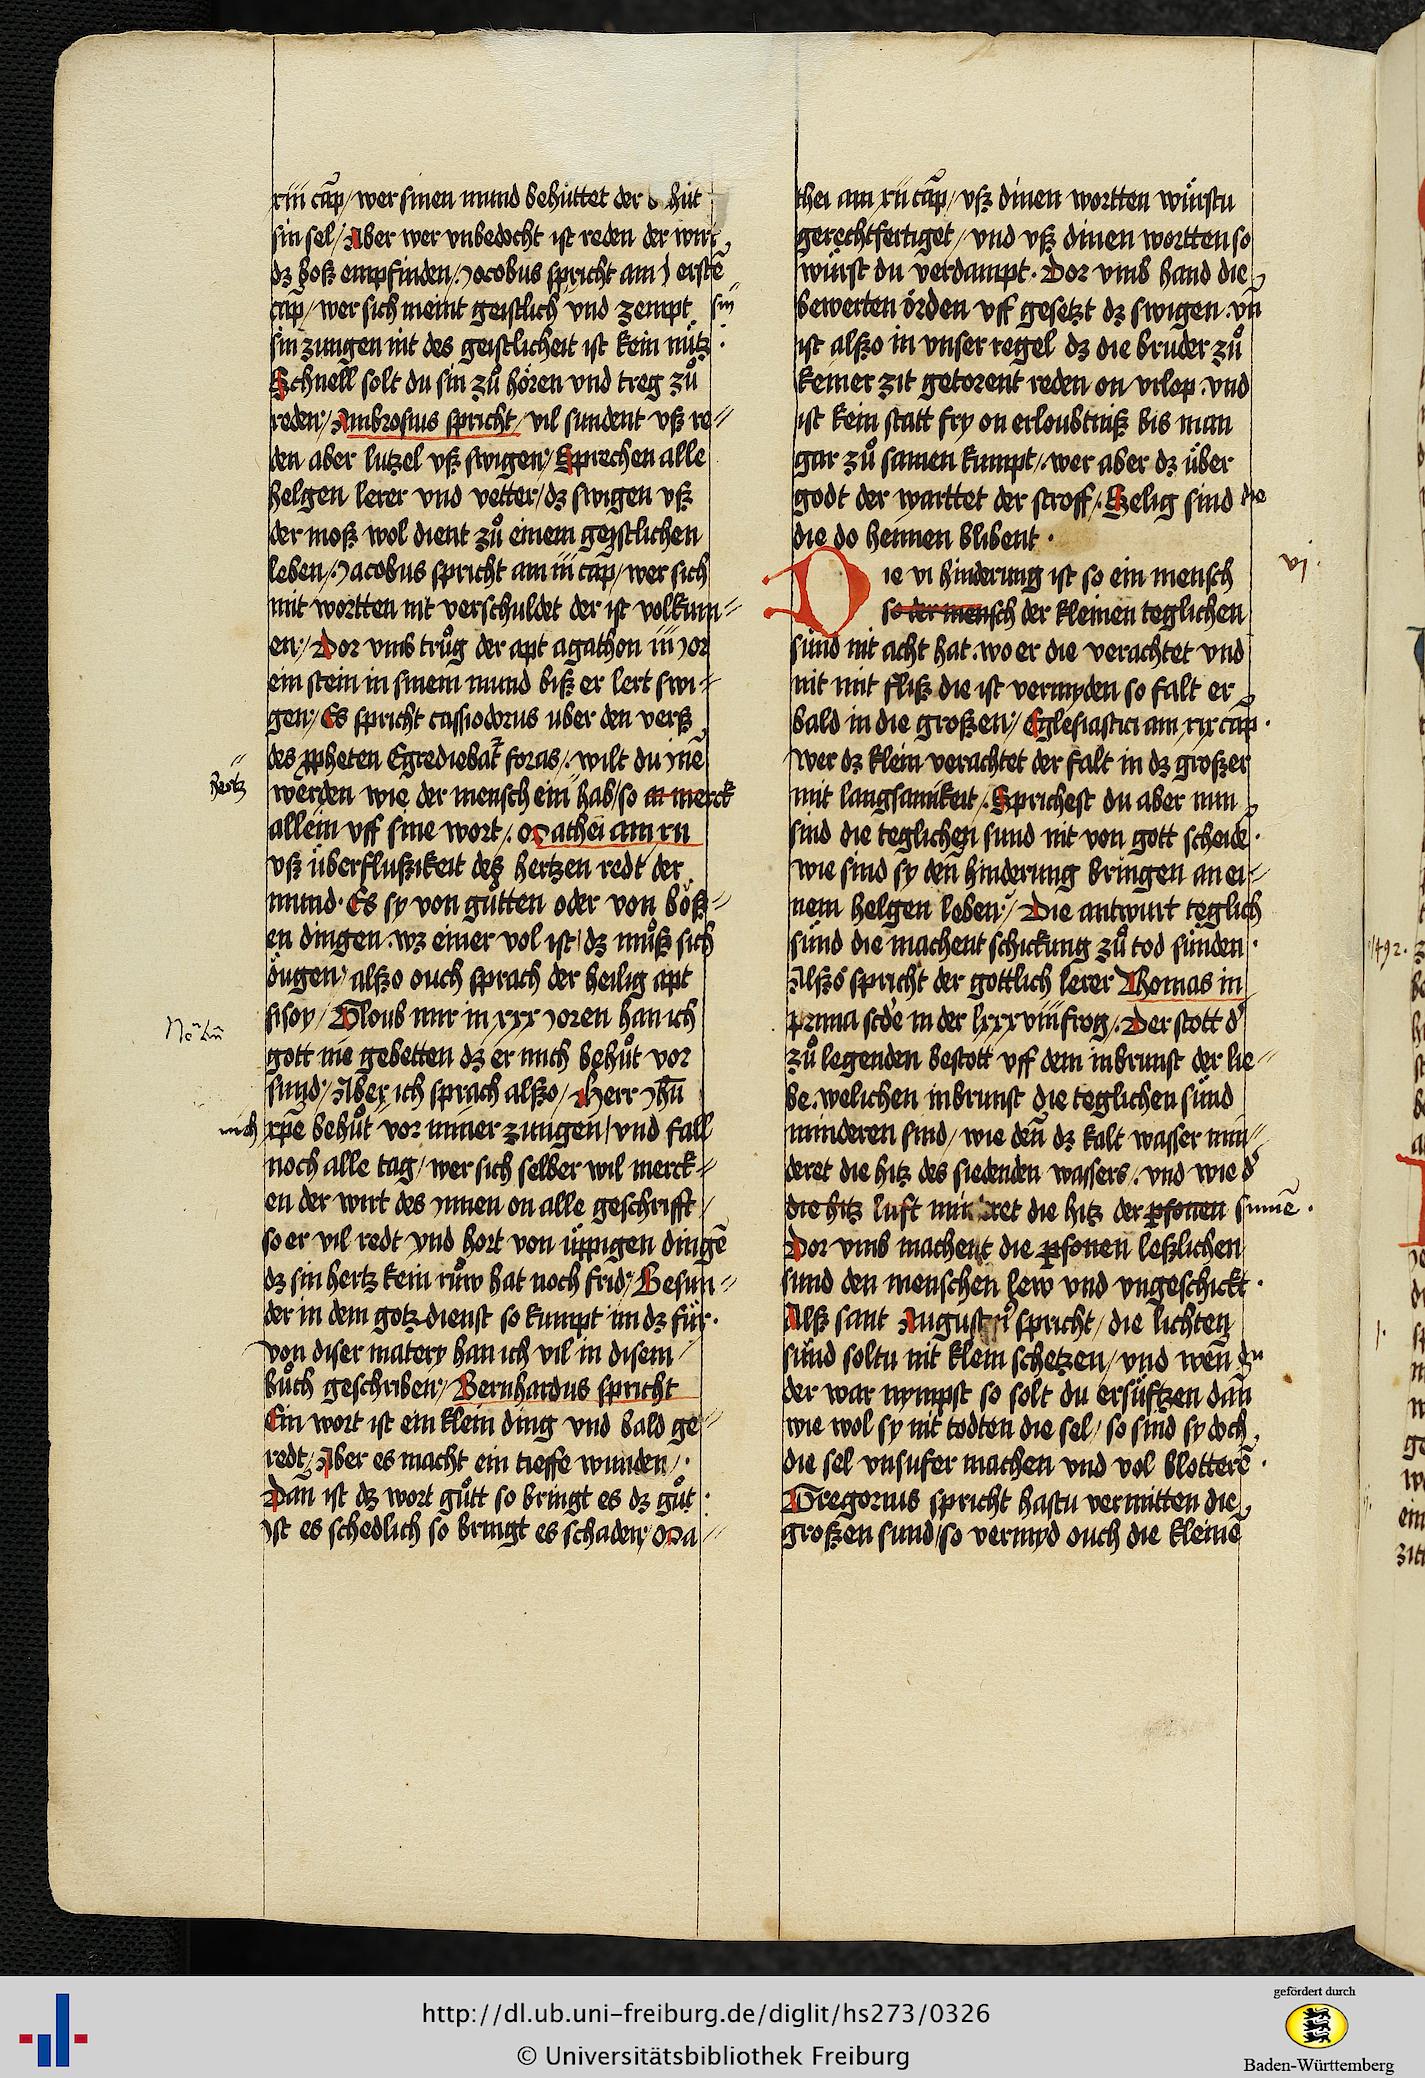 xiii cap̄ / wer sinen mund behüttet der b hüt
sin sel / Aber wer vnbedocht ist reden der wirt
dz boß empfinden / Jacobus spricht am j erstē
cap̄ / wer sich meint geistlich vnd zempt sin
sin zungen nit des geistlicheit ist kein nütz ·
Schnell solt du sin zů hören vnd treg zů
reden / Ambrosius spricht / vil sundent vß re⸗
den aber lutzel vß swigen / Sprechen alle
helgen lerer vnd vetter / dz swigen vß
der moß wol dient zů einem geistlichen
leben / Jacobus spricht am iii cap̄ / wer sich
mit wortten nit verschuldet der ist volkum⸗
en / Dor vmb trůg der apt agathon iii jor
ein stein in sinem mund biß er lert swi⸗
gen / Es spricht cassiodorus uber den verß
des ꝓpheten Egrediebat᷑ foras / wilt du jnē
hertz
werden wie der mensch ein hab / so an merck
allein vff sine wort / Mathei am xii
vß überflußikeit deß hertzen redt der
mund · Es sy von gůtten oder von böß⸗
en dingen · wz einer vol ist / dz můß sich
öugen / alßo ouch sprach der heilig apt
sisoy / Gloub mir in xxx joren han ich
gott nie gebetten dz er mich behůt vor
sund / Aber ich sprach alßo / Herr jhū
mich
xp̄e behůt vor miner zungen / vnd fall
noch alle tag / wer sich selber wil merck⸗
en der wirt des jnnen on alle geschrifft
so er vil redt vnd hort von üppigen dingē
dz sin hertz kein růw hat noch frid / Besun⸗
der in dem gotz dienst so kumpt im dz für ·
von diser matery han ich vil in disem
bůch geschriben / Bernhardus spricht
Ein wort ist ein klein ding vnd bald ge⸗
redt / Aber es macht ein tieffe wunden / ·
Dan̄ ist dz wort gůtt so bringt es dz gůt ·
Ist es schedlich so bringt es schaden / Ma⸗
thei am xii cap̄ / vß dinen wortten würstu
gerechtfertiget / vnd vß dinen wortten so
würst du verdampt · Dor vmb hand die
bewerten örden vff gesetzt dz swigen · vn̄
ist alßo in vnser regel dz die bruder zů
keiner zit getorent reden on vrlop · vnd
ist kein statt fry on erloubtniß bis man
gar zů samen kumpt / wer aber dz über
godt der warttet der stroff / Selig sind die
die do heimen blibent ·
vj ·
Die vi hinderung ist so ein mensch
so der mensch der kleinen teglichen
sünd nit acht hat · wo er die verachtet vnd
nit mit fliß die ist vermyden so falt er
bald in die großen / Eglesiastici am xix cap̄ ·
wer dz klein verachtet der falt in dz großer
mit langsamikeit / Sprichest du aber nun
sind die teglichen sund nit von gott scheidē ·
wie sind sy den̄ hinderung bringen an ei⸗
nem helgen leben / Die antwurt teglich
sünd die machent schickung zů tod sünden ·
Alßo spricht der gottlich lerer Thomas in
prima scd̄e in der lxxxviii frog / Der stott d'
zů legenden bestott vff dem inbrunst der lie⸗
be · welichen inbrunst die teglichen sünd
minderen sind / wie den̄ dz kalt wasser min⸗
deret die hitz des siedenden wassers / vnd wie d'
die hitz luft minderet die hitz der ꝑsonen sunnē ·
Dor vmb machent die ꝑsonen leßlichen
sund den menschen lew vnd vngeschickt ·
Alß sant Augusti spricht / die lichten
sünd soltu nit klein schetzen / vnd wen̄ du
der war nympst so solt du ersüftzen dan̄
wie wol sy nit todten die sel / so sind sy doch
die sel vnsufer machen vnd vol blotterē ·
Gregorius spricht hastu vermitten die
großen sund / so vermyd ouch die kleinē
http://dl.ub.uni-freiburg.de/diglit/hs273/0326
© Universitätsbibliothek Freiburg
gefördert durch
Baden-Württemberg